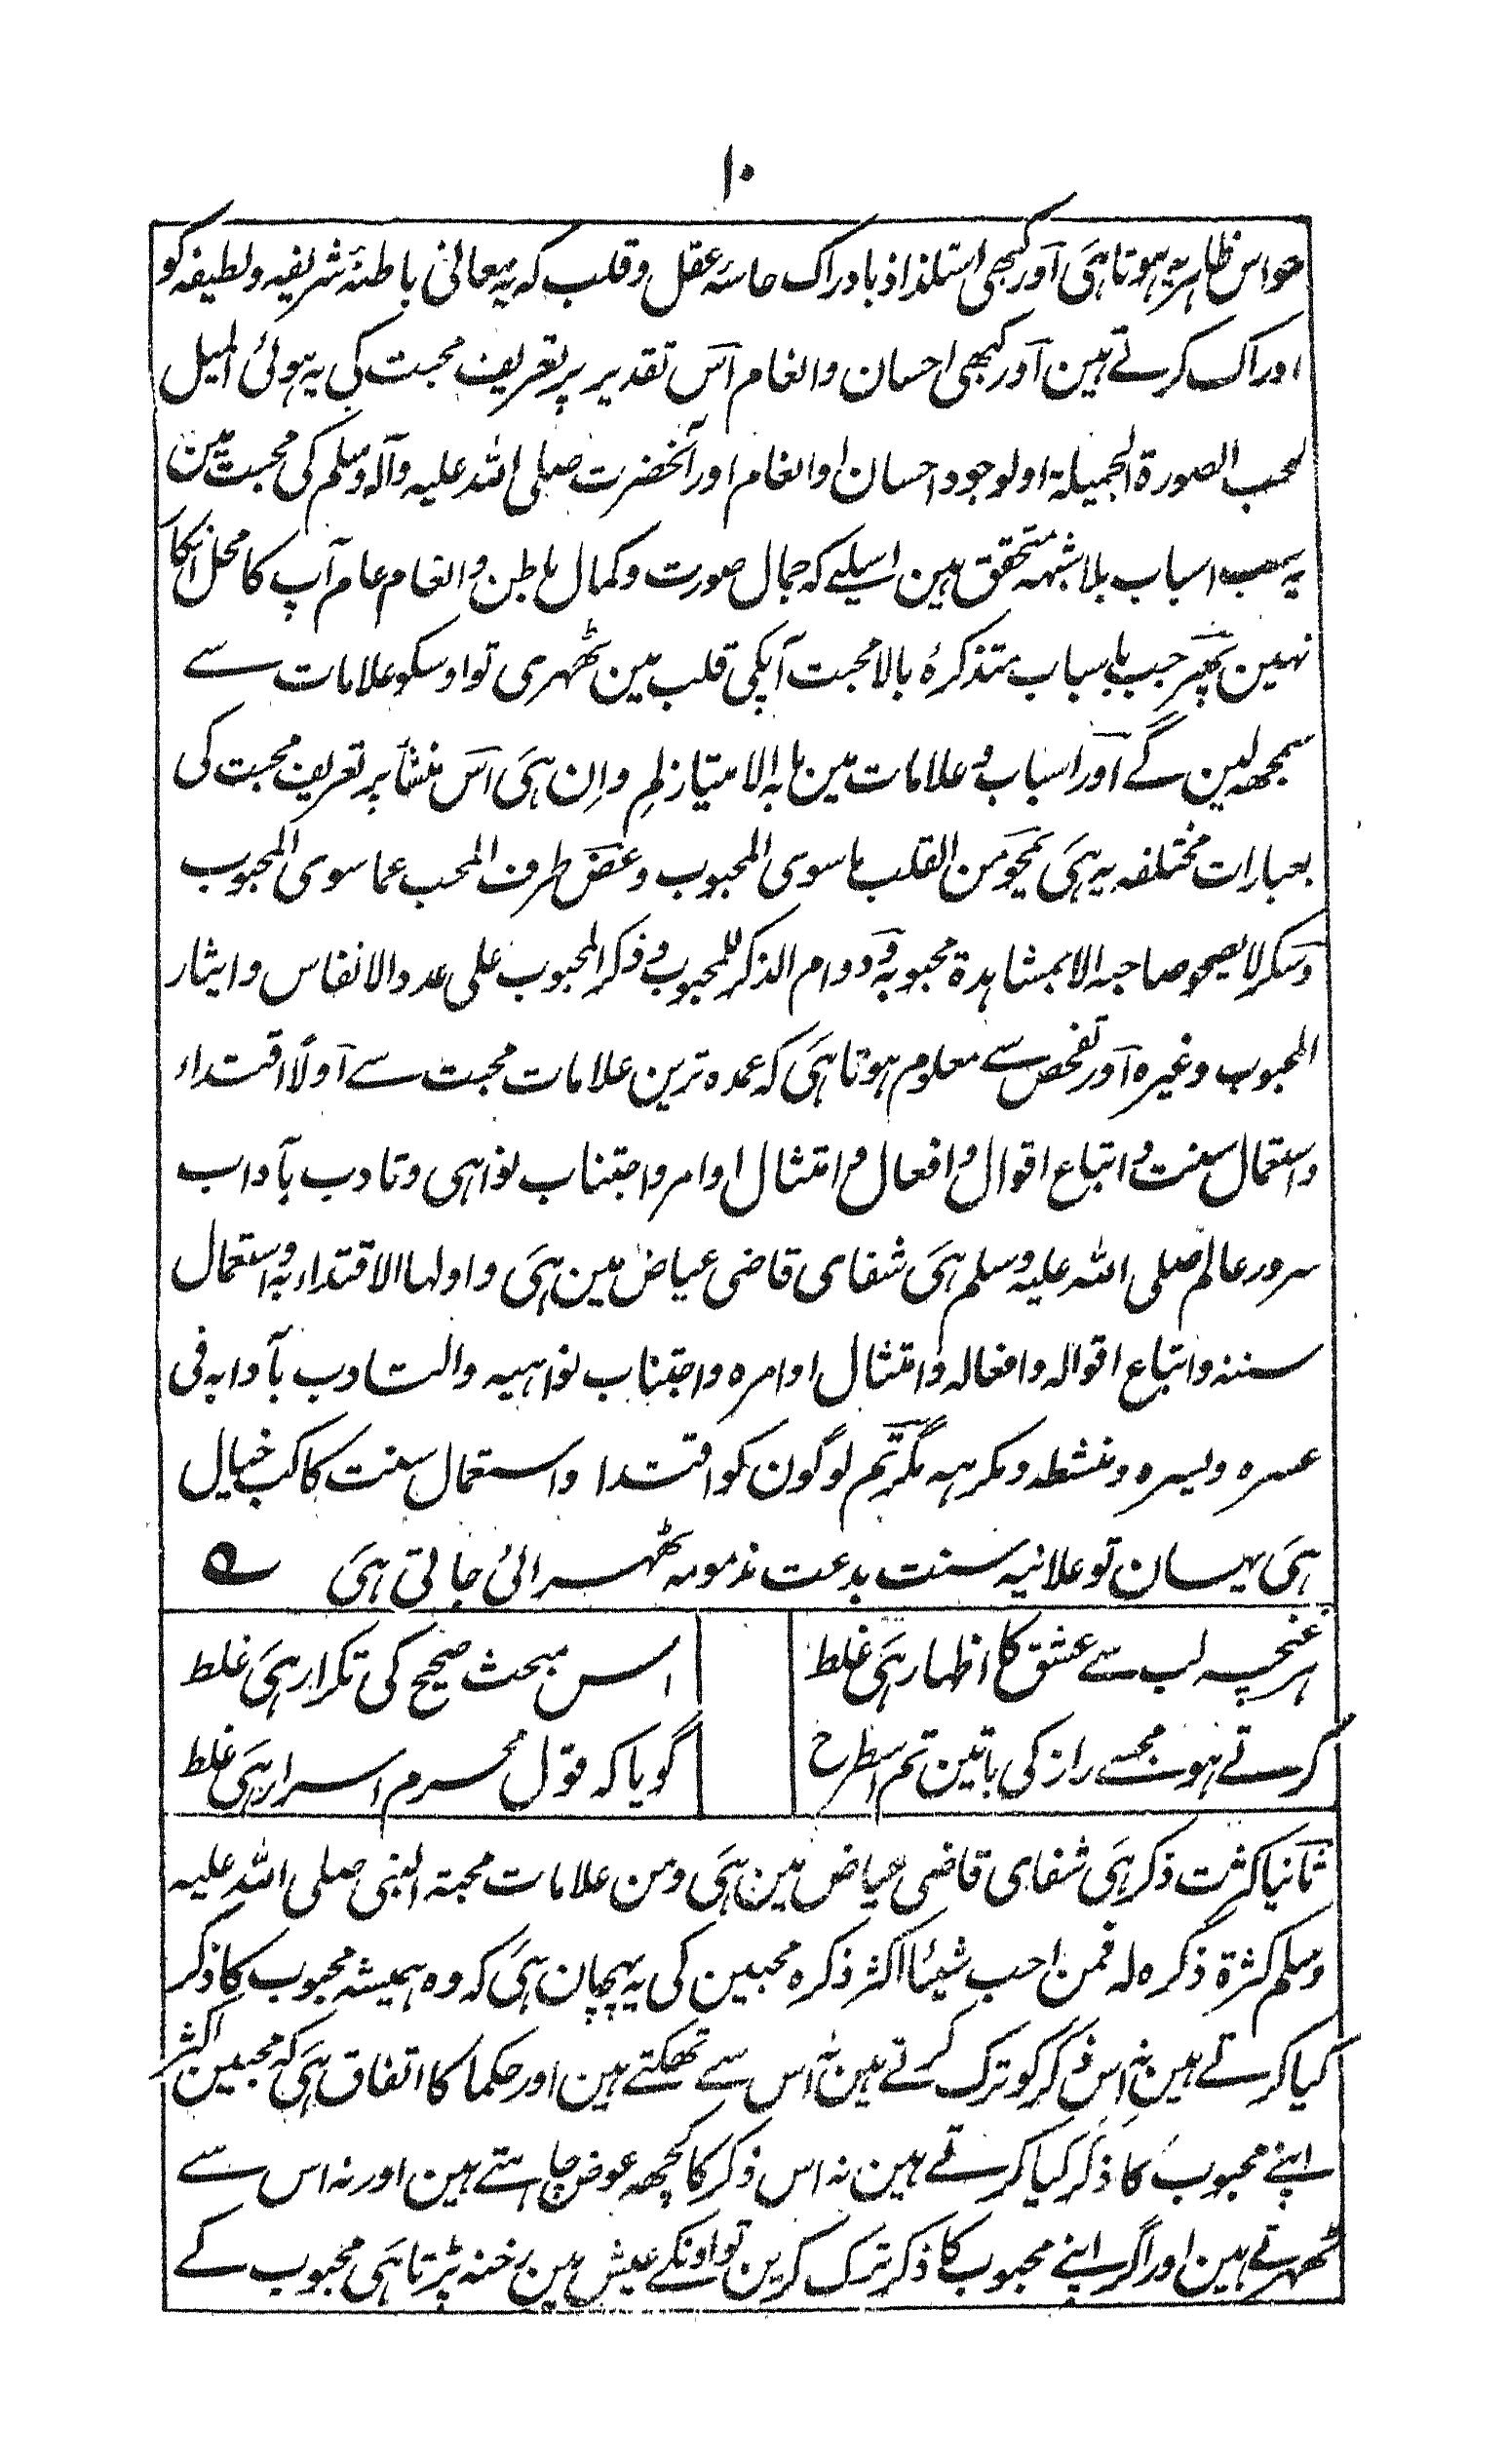 ۱۰
حواس ظاہریہ ہوتا ہی اور کبھی استلذاذ بادراک حاسۂ عقل و قلب کہ یہ معانی باطنۂ شریفہ و لطیفہ کو
ادراک کرتے ہین اور کبھی احسان و انعام اس تقدیر پر تعریف محبت کی یہ ہوئی المیل
لحب الصورۃ الجمیلۃ او لوجود احسان او انعام اور آنحضرت صلی اللہ علیہ وآلہ وسلم کی محبت مین
یہ سب اسباب بلاشبہہ متحقق ہین اسلیے کہ جمال صورت و کمال باطن و انعام عام آپ کا محل انکار
نہین پھر جب باسباب متذکرۂ بالا محبت آپکی قلب مین ٹھہری تو اوسکو علامات سے
سمجھہ لین گے اور اسباب و علامات مین ما بہ الامتیاز لمِ و اِن ہی اس منشأ پر تعریف محبت کی
بعبارات مختلفہ یہ ہی محو من القلب ما سوی المحبوب و غض طرف المحب عما سوی المحبوب
و سکر لا یصحو صاحبہ الا بمشاہدۃ محبوبہ و دوام الذکر للمحبوب و ذکر المحبوب علی عدد الانفاس و ایثار
المحبوب وغیرہ اور تفحص سے معلوم ہوتا ہی کہ عمدہ ترین علامات محبت سے اولاً اقتداء
و استعمال سنت و اتباع اقوال و افعال و امتثال اوامر و اجتناب نواہی و تادب بآداب
سرور عالم صلی اللہ علیہ وسلم ہی شفای قاضی عیاض مین ہی و اولہا الاقتداء بہ و استعمال
سننہ و اتباع اقوالہ و افعالہ و امتثال اوامرہ و اجتناب نواہیہ والتادب بآدابہ فی
عسرہ و یسرہ و منشطہ و مکرہہ مگر تم لوگون کو اقتدا و استعمال سنت کا کب خیال
ہی یہان تو علانیہ سنت بدعت مذمومہ ٹھہرائی جاتی ہی ؎
ہر غنچہ لب سے عشق کا اظہار ہی غلط اس مبحث صحیح کی تکرار ہی غلط
کرتے ہو مجھسے راز کی باتین تم اسطرح گویا کہ قول محرم اسرار ہی غلط
ثانیا کثرت ذکر ہی شفای قاضی عیاض مین ہی و من علامات محبۃ النبی صلی اللہ علیہ
وسلم کثرۃ ذکرہ لہ فمن احب شیئا اکثر ذکرہ محبین کی یہ پہچان ہی کہ وہ ہمیشہ محبوب کا ذکر
کیا کرتے ہین نہ اس ذکر کو ترک کرتے ہین نہ اس سے تھکتے ہین اور حکما کا اتفاق ہی کہ محبین اکثر
اپنے محبوب کا ذکر کیا کرتے ہین نہ اس ذکر کا کچھہ عوض چاہتے ہین اور نہ اس سے
ٹھہرتے ہین اور اگر اپنے محبوب کا ذکر ترک کرین تو اونکے عیش مین رخنہ پڑتا ہی محبوب کے